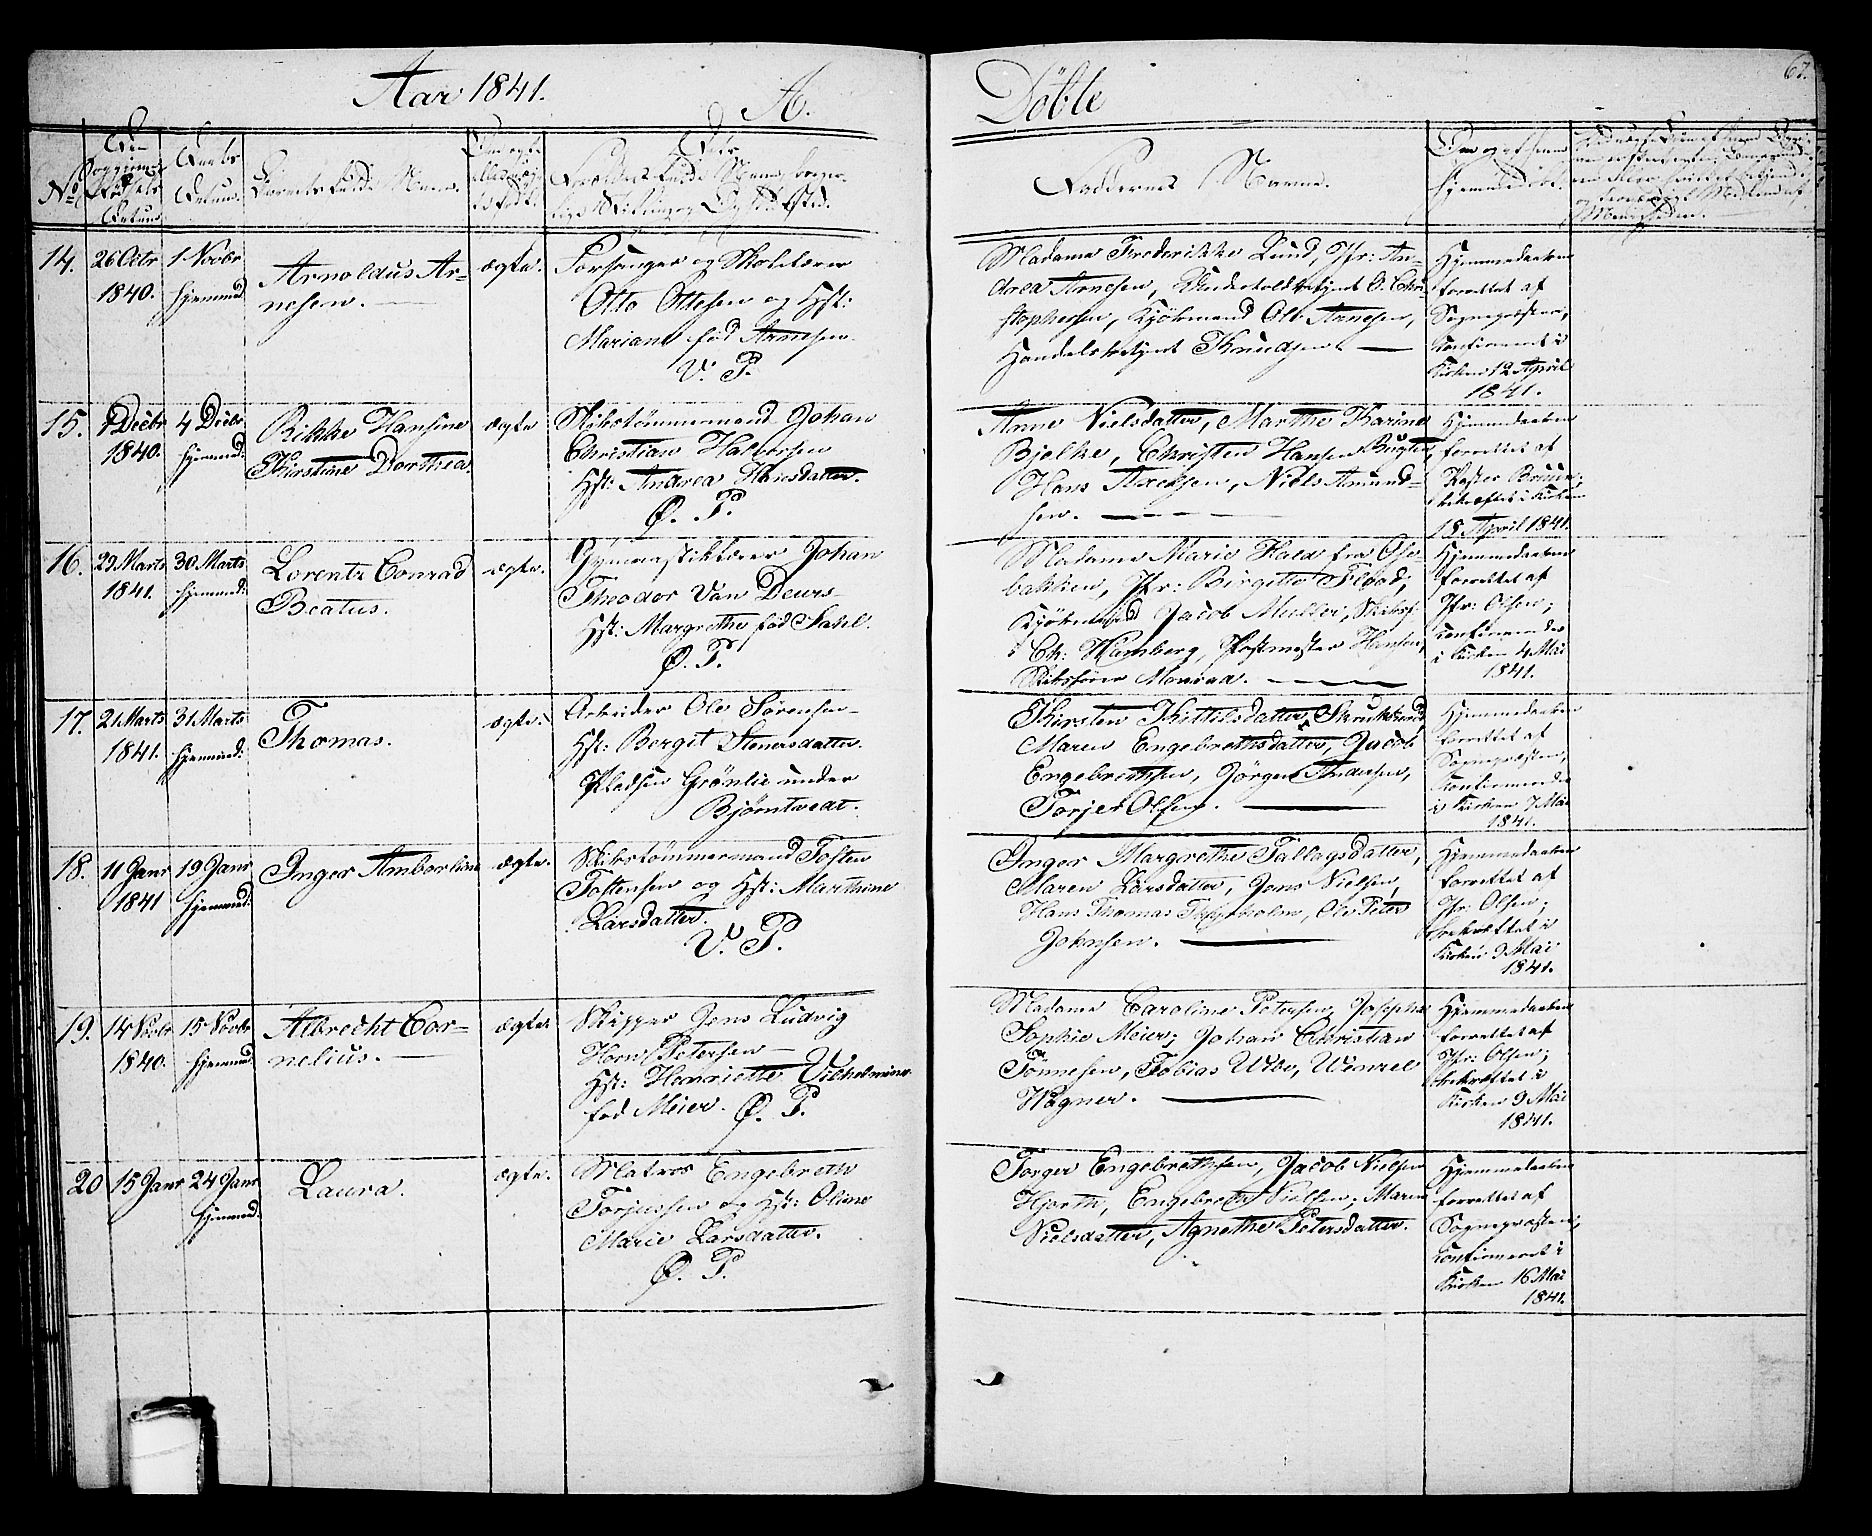 Aar 1841.
A.
Döbte
67.
No
Barnets fulde Navn.
Faddernes Navne.
14.
26 Octr
1840.
1 Novbr
hjemmed.
Arnoldus Ar-
nesen.
ægte.
Forsanger og Skolelærer
Otto Ottesen og Hst:
Mariane fød Arnesen.
V. P.
Madame Frederikke Lund, Jfr: An-
drea Arnesen, Chri-
stophersen, Kjöbmand Ole Arnesen,
Handelsbetjent Knudsen.
Hjemmedaaben
forrettet af
Sognepræsten,
Confirmeret i
Kirken 12 April
1841.
15.
Decbr
1840.
4 Decbr
hjemmed:
Rikke Hansine
Kirstine Dorthea.
ægte
Skibstømmermand Johan
Christian Halvorsen
Hst: Andrea Hansdatter.
Ø. P.
Anne Nielsdatter, Marthe Karine
Bjelke, Christen Hansen Bugten,
Hans Axelsen, Niels Amund-
sen.
Hjemmedaaben
forrettet af
Pastor
bekræftet i Kirken
18 April 1841.
16.
29 Marts
1841.
30 Marts
hjemmed:
Lorentz Conrad
Beatus.
ægte.
Gymnastiklærer Johan
Theodor Van Deurs
Hst: Margrethe fød Sahl.
Ø. P.
Madame Marie Hald fra Ose-
bakken, Jfr: Birgitte Flood,
Kjöbmand Jacob Müller, Skibsf:
Ch: Hamberg, Postmester Hansen,
Skibsfører Monrad.
Hjemmedaaben
forrettet af
Jfr: Olsen;
Confirmeredes
i Kirken 4 Mai
1841.
17.
21 Marts
1841.
31 Marts
hjemmed:
Thomas.
ægte.
Arbeider Ole Sörensen
Hst: Bergit Stenersdatter.
Pladsen Grönlie under
Bjørntvedt.
Kirsten Kittilsdatter Skrukkerud
Maren Engebrethsdatter, Jacob
Engebrethsen, Jörgen Andersen,
Torjer Olsen.
Hjemmedaaben
forrettet af
Sognepræsten,
Confirmeredes
i Kirken 7 Mai
1841.
18.
11 Janr
1841
19 Janr
hjemmed:
Inger Amborline
ægte.
Skibstømmermand Tosten
Tostensen og Hst: Marthine
Larsdatter.
V. P.
Inger Margrethe Tallagsdatter,
Maren Larsdatter, Jens Nielsen,
Hans Thomas, Ole Peter
Johnsen.
Hjemmedaaben
forrettet af
Jfr: Olsen;
bekræftet i
Kirken 9 Mai
1841.
19.
14 Novbr
1840.
15 Novbr
hjemmed:
Albrecht Cor-
nelius.
ægte
Skipper Jens Ludvig
Horn Petersen
Hst: Henriette Vilhelmine
fød Meier. Ø. P.
Madame Caroline Petersen, Josepha
Sophie Meier; Johan Christian
Tönnesen, Tobias Wibe, Wenzel
Wagner.
Hjemmedaaben
forrettet af
Jfr: Olsen;
bekræftet i
Kirken 9 Mai
1841.
20
15 Janr
24 Janr
hjemmed:
Laura.
ægte.
Matros Engebreth
Torjussen og Hst: Oline
Marie Larsdatter.
Ø. P.
Torger Engebrethsen, Jacob Nielsen
Hjorth, Engebreth Nielsen; Maren
Nielsdatter, Agnethe Petersdatter.
Hjemmedaaben
forrettet af
Sognepræsten;
Confirmeret i
Kirken 16 Mai
1841.